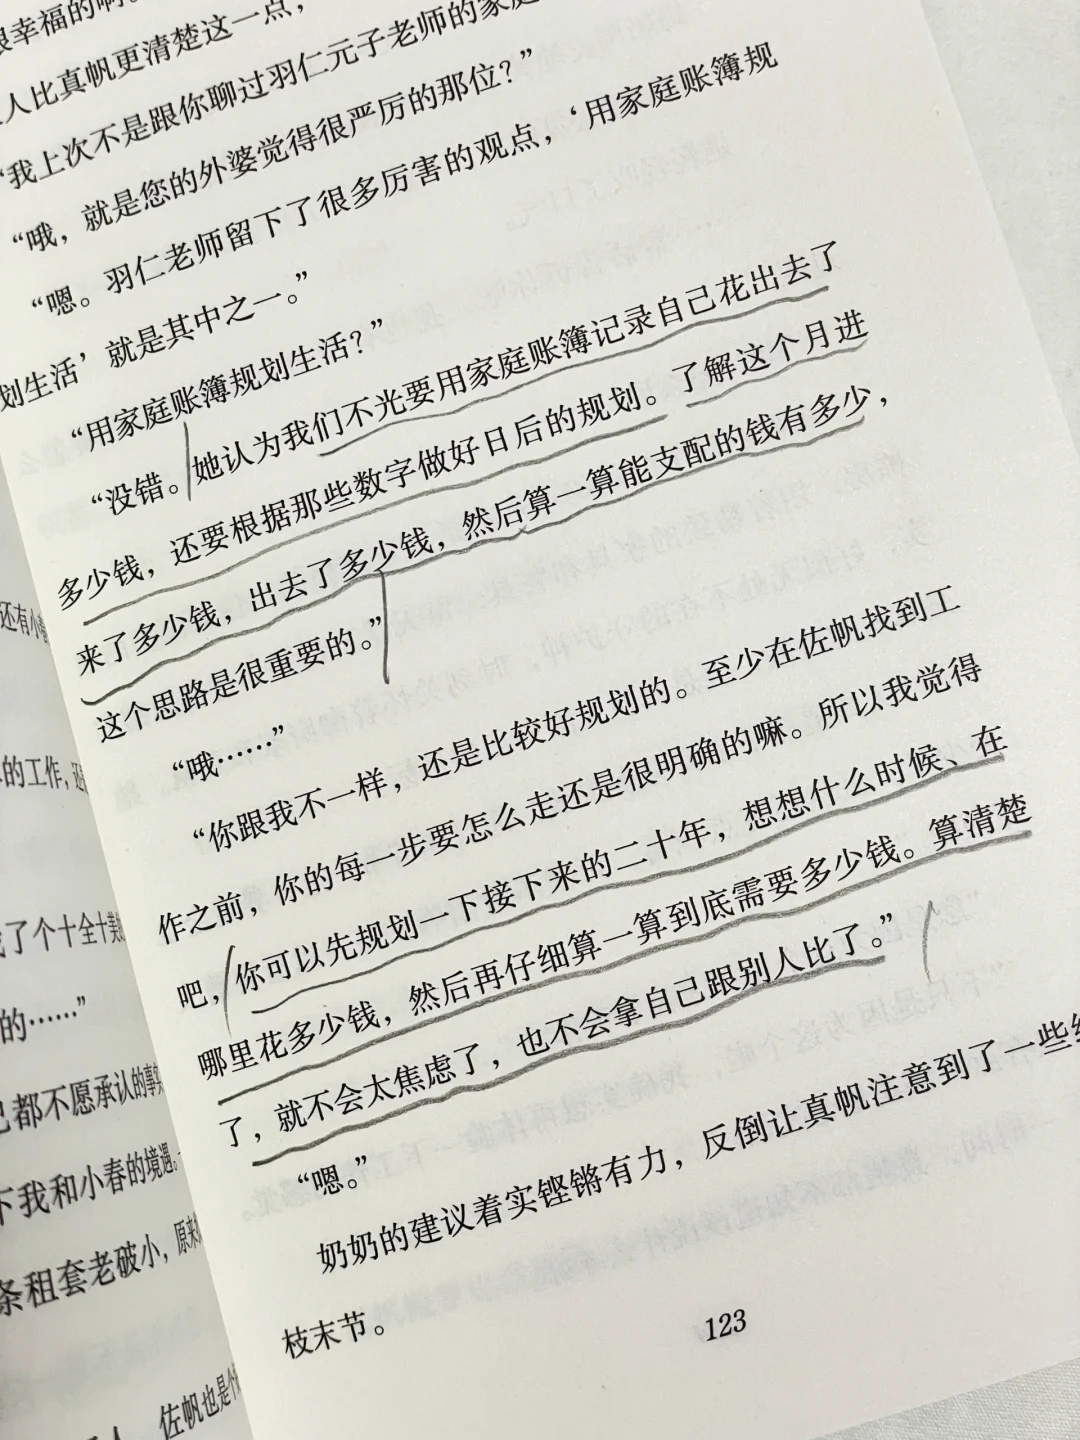 很幸福的啊。
人比真帆更清楚这一点，
“我上次不是跟你聊过羽仁元子老师的家庭
“哦，就是您的外婆觉得很严厉的那位？”
“嗯。羽仁老师留下了很多厉害的观点，‘用家庭账簿规
划生活’就是其中之一。”
“用家庭账簿规划生活？”
“没错。她认为我们不光要用家庭账簿记录自己花出去了
多少钱，还要根据那些数字做好日后的规划。了解这个月进
来了多少钱，出去了多少钱，然后算一算能支配的钱有多少，
这个思路是很重要的。”
“哦……”
“你跟我不一样，还是比较好规划的。至少在佐帆找到工
作之前，你的每一步要怎么走还是很明确的嘛。所以我觉得
吧，你可以先规划一下接下来的二十年，想想什么时候、在
哪里花多少钱，然后再仔细算一算到底需要多少钱。算清楚
了，就不会太焦虑了，也不会拿自己跟别人比了。”
“嗯。”
奶奶的建议着实铿锵有力，反倒让真帆注意到了一些细
枝末节。
123
还有小春
的工作，还
了个十全十美的
的……”
都不愿承认的事实
下我和小春的境遇。
条租套老破小，原来
人 佐帆也是个